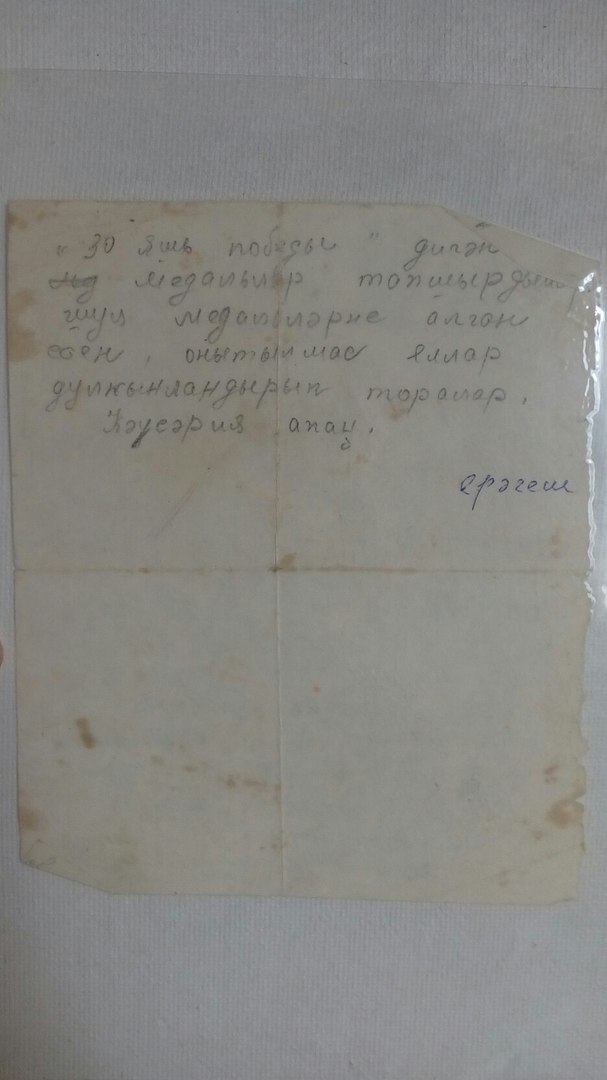 " 30 яшь победы " дигән
медальләр тапшырдылар
шул медальләрне алган
өчен, онытылмас еллар
дулкынландырып торалар.
Кәүсәрия апаң.